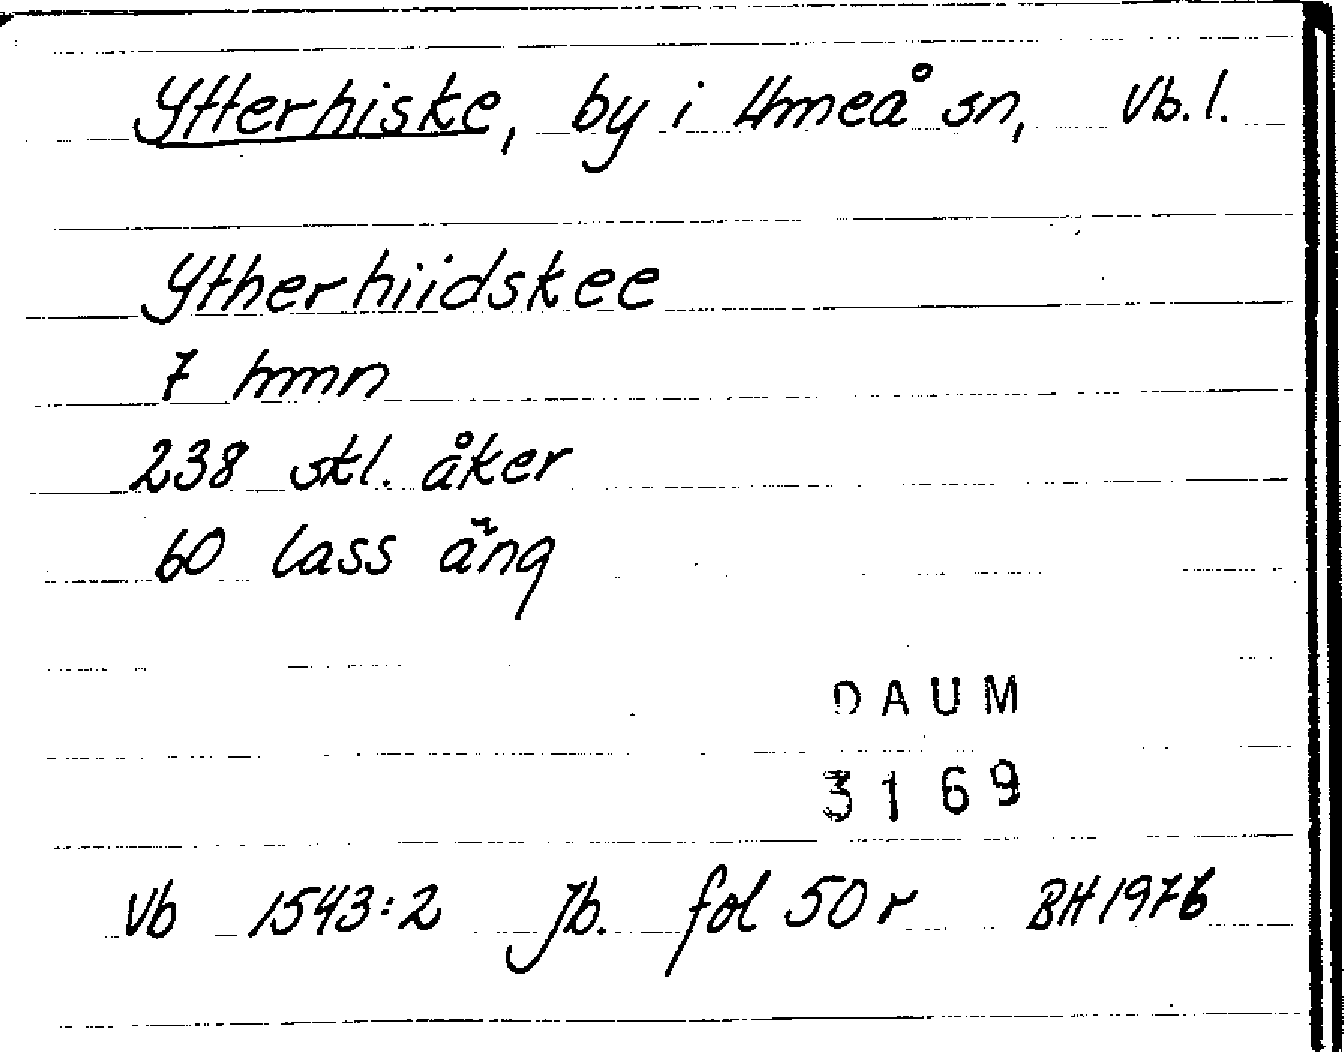 Ytterhiske, by i Umeå sn, Vb.l.
Ytherhiidskee
7 hmn
238 skl. åker
60 lass äng
DAUM
3169
Vb 1543:2 Jb. fol 50 r BH 1976